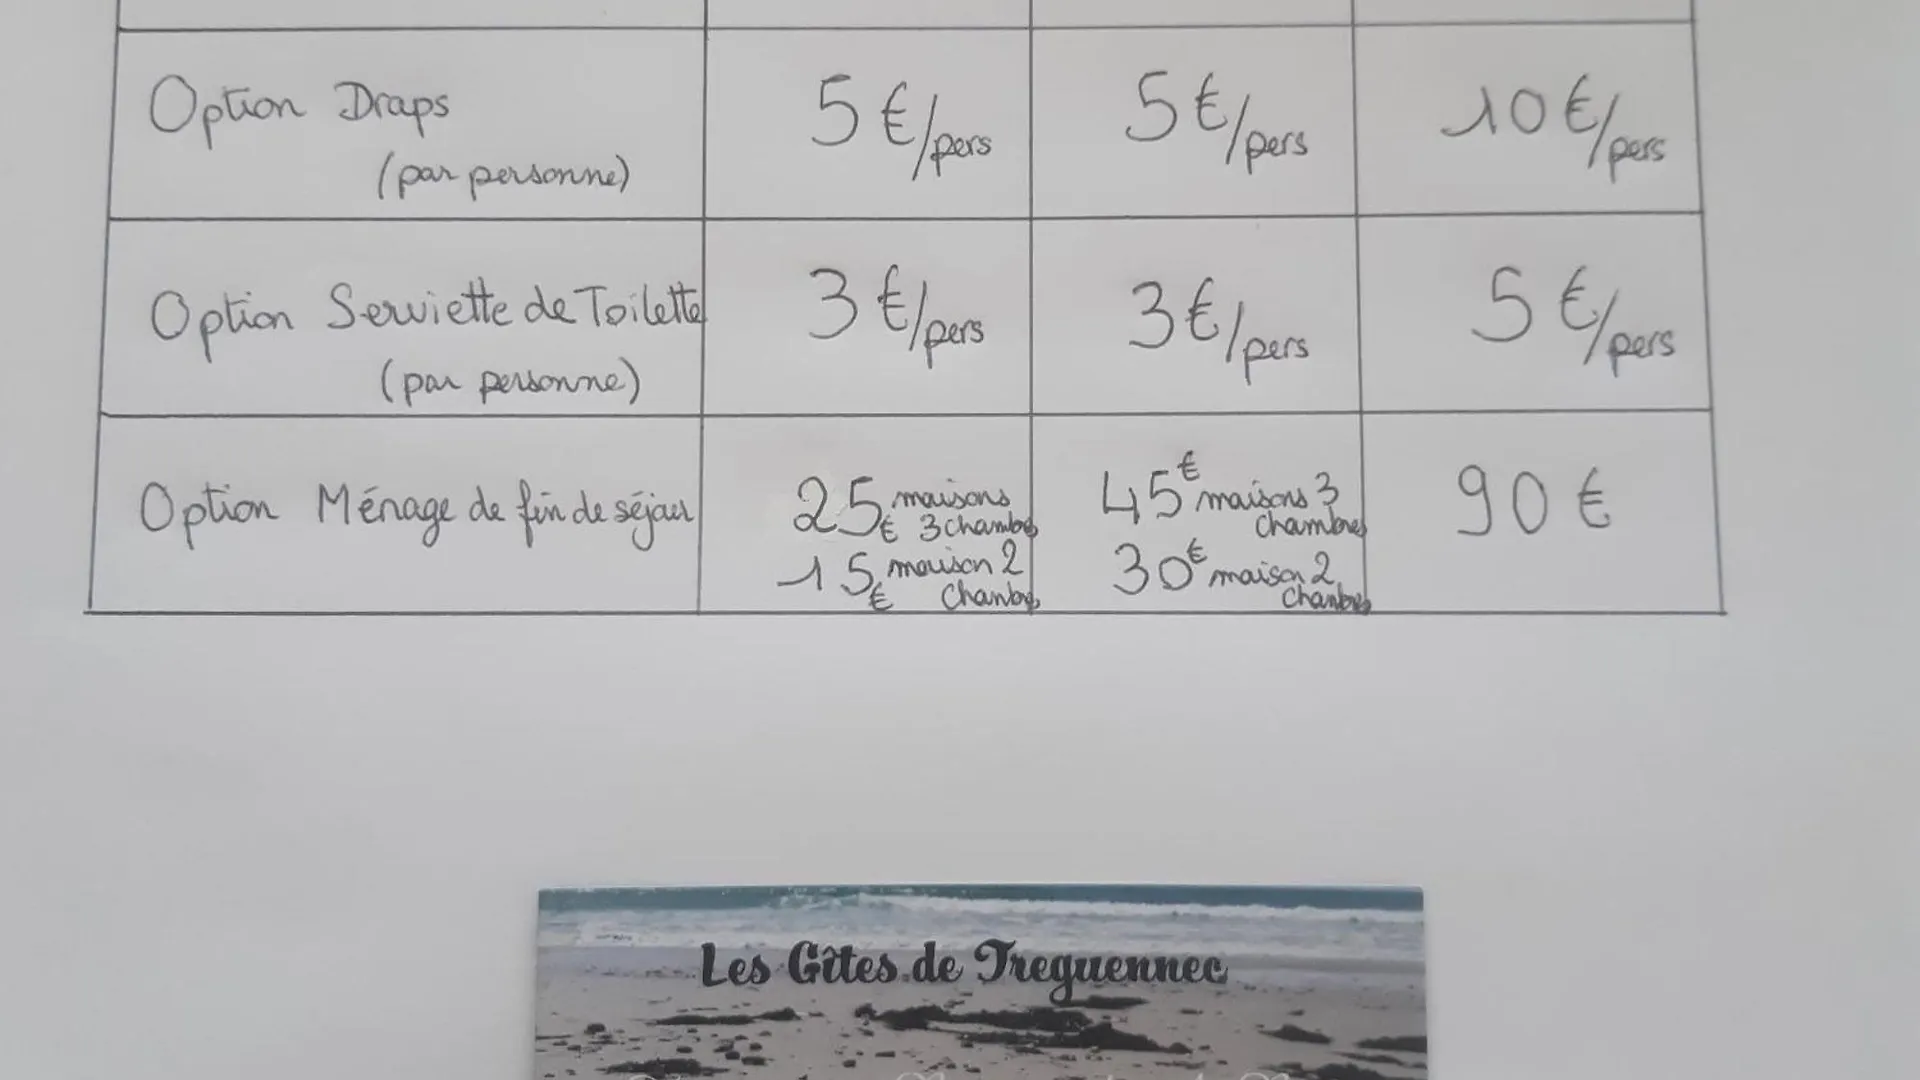 Option Draps
(par personne)
5 €/pers
5 €/pers
10 €/pers
Option Serviette de Toilette
(par personne)
3 €/pers
3 €/pers
5 €/pers
Option Ménage de fin de séjour
25 € maisons
3 chambres
15 € maison 2
chambres
45 € maisons 3
chambres
30 € maison 2
chambres
90 €
Les Gîtes de Treguennec